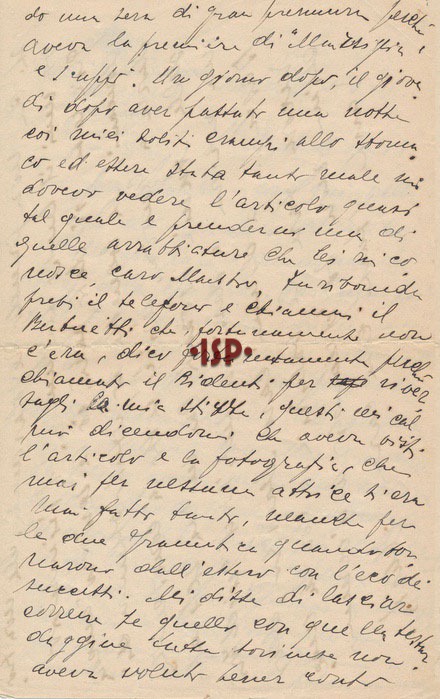 do una sera di gran premura perché
aveva la première di "
e scappò. Un giorno dopo, il giove
dì dopo aver passato una notte
coi miei soliti crampi allo stoma
co ed essere stata tanto male mi
dovevo vedere l'articolo quasi
tal quale e prendermi una di
quelle arrabbiature che lei mi co
nosce, caro Maestro. Furibonda
presi il telefono e chiamai il
che, fortunatamente non
c'era, dico fortunatamente
chiamato il Ridenti per river
sagli la mia stizza, questi mi cal
mò dicendomi che aveva visto
l'articolo e la fotografia, che
mai per nessuna attrice s'era
mai fatto tanto, neanche per
le due Gramatica quando tor
narono dall'estero con l'eco dei
successi. Mi disse di lasciar
correre se quello con quella testar
daggine tutta torinese non
aveva voluto tener conto
·ISP·